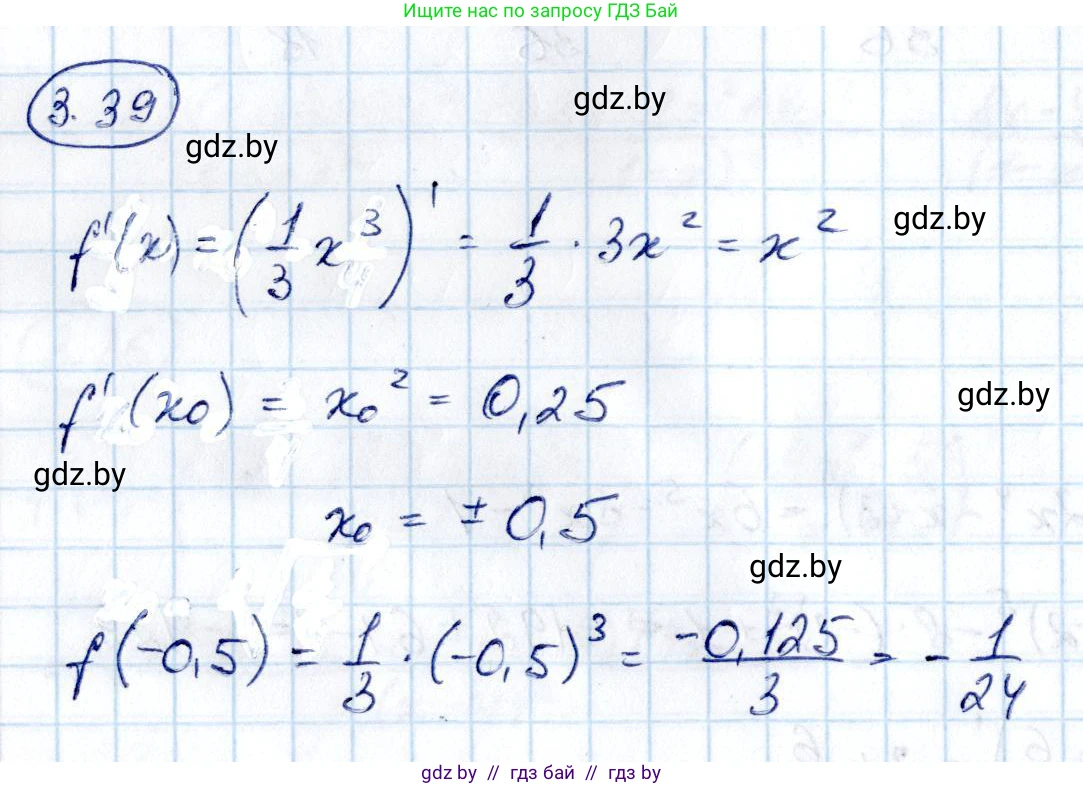 Ищите нас по запросу ГДЗ Бай
3.39
gdz.by
gdz.by
f'(x) = (1/3 x³)' = 1/3 · 3x² = x²
gdz.by
f'(x₀) = x₀² = 0,25
gdz.by
gdz.by
x₀ = ± 0,5
gdz.by
f(-0,5) = 1/3 · (-0,5)³ = -0,125/3 = - 1/24
gdz by // гдз бай // гдз by